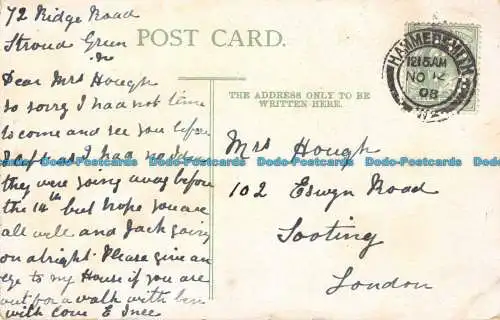 72 Ridge Road
Stroud Green
N
Dear Mrs Hough
so sorry I had not time
to come and see you before
I left as I had no idea
they were going away before
the 14th but hope you are
all well and Jack going
on alright. Please give an
eye to my House if you are
out for a walk with
with love E
POST CARD.
THE ADDRESS ONLY TO BE
WRITTEN HERE.
HAMMERSMITH
12.15 AM
NO 12
08
Mrs Hough
102 Eswyn Road
Tooting
London
Dodo-Postcards Dodo-Postcards Dodo-Postcards Dodo-Postcards Dodo-Postcards